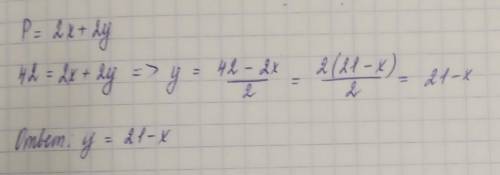 P = 2x + 2y
42 = 2x + 2y => y = (42 - 2x)/2 = 2(21 - x)/2 = 21 - x
Ответ: y = 21 - x